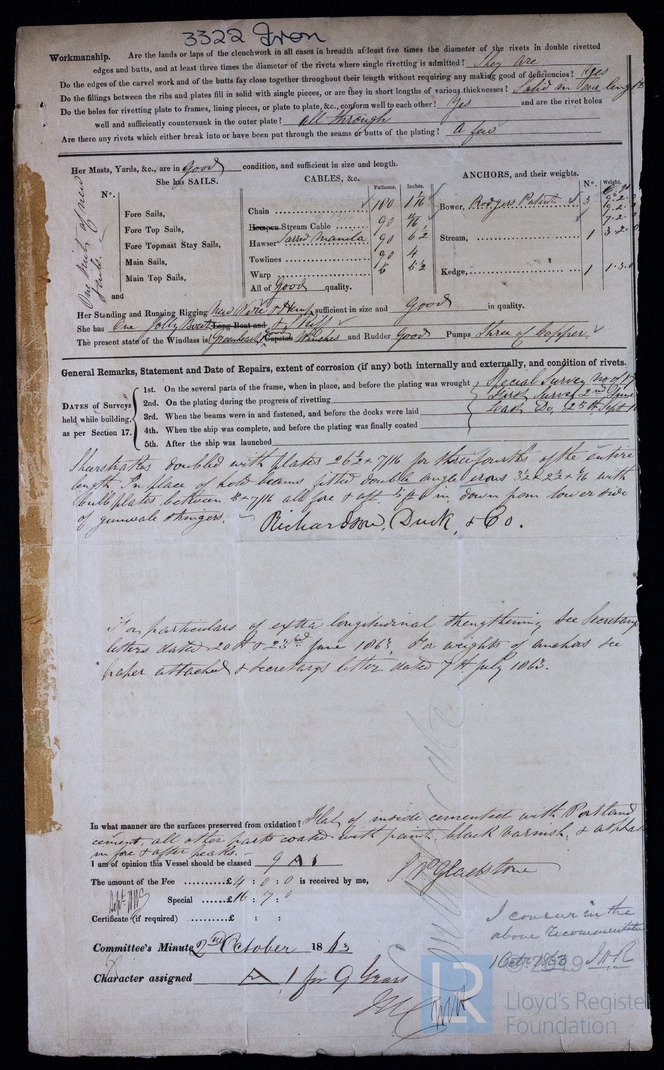 3322 Iron
Workmanship. Are the lands or laps of the clenchwork in all cases in breadth at least five times the diameter of the rivets in double rivetted
edges and butts, and at least three times the diameter of the rivets where single rivetting is admitted? They are
Do the edges of the carvel work and of the butts fay close together throughout their length without requiring any making good of deficiencies? Yes
Do the fillings between the ribs and plates fill in solid with single pieces, or are they in short lengths of various thicknesses? Solid in one length
Do the holes for rivetting plate to frames, lining pieces, or plate to plate, &c., conform well to each other? Yes and are the rivet holes
well and sufficiently countersunk in the outer plate? all through
Are there any rivets which either break into or have been put through the seams or butts of the plating? A few
Her Masts, Yards, &c., are in Good condition, and sufficient in size and length.
She has SAILS. CABLES, &c. ANCHORS, and their weights.
N°. Fathoms. Inches. N°. Weight.
One suit of new sails.
Fore Sails,
Fore Top Sails,
Fore Topmast Stay Sails,
Main Sails,
Main Top Sails,
and
Chain
Hempen Stream Cable 90
Hawser Tarred Manila 90 6½
Towlines 90 4
Warp 5½
All of Good quality.
Bower, Rodgers Patent 3
Stream, 1 3.2.0
Kedge, 1 1.3.0
Her Standing and Running Rigging New Wire & Hemp sufficient in size and Good in quality.
She has One Jolly Boat Long Boat and
The present state of the Windlass is Greenheart Capstan Winches and Rudder Good Pumps Three of Copper.
General Remarks, Statement and Date of Repairs, extent of corrosion (if any) both internally and externally, and condition of rivets.
DATES of Surveys held while building, as per Section 17.
1st. On the several parts of the frame, when in place, and before the plating was wrought
2nd. On the plating during the progress of rivetting
3rd. When the beams were in and fastened, and before the decks were laid
4th. When the ship was complete, and before the plating was finally coated
5th. After the ship was launched
Special Survey No of 17
First Survey 2nd June
Last Do. 25th Sept
Sheerstrakes doubled with plates 26½ × 7/16 for three fourths of the entire
length. In place of hold beams fitted double angle irons 3½ × 2½ × 6/16 with
bulb plates between 8 × 7/16 all fore & aft in down from lower side
of gunwale stringers. Richardson, Duck, & Co.
For particulars of extra longitudinal strengthening see Secretary
letters dated 20th & 23rd June 1863, For weights of anchors see
paper attached & Secretary's letter dated 7th July 1863.
In what manner are the surfaces preserved from oxidation? Flat of inside cemented with Portland
cement, all other parts coated with paint, black varnish, & asphal
in fore & after peaks.
I am of opinion this Vessel should be classed 9 A 1
The amount of the Fee £4 : 0 : 0 is received by me,
Special £16 : 7 : 0
Certificate (if required) £ : :
J W Gladstone
I concur in the
above recommendation
1 Octr. 1863
Committee's Minute 2nd October 1863
Character assigned A 1 for 9 Years
LR
© 2019
Lloyd's Register
Foundation